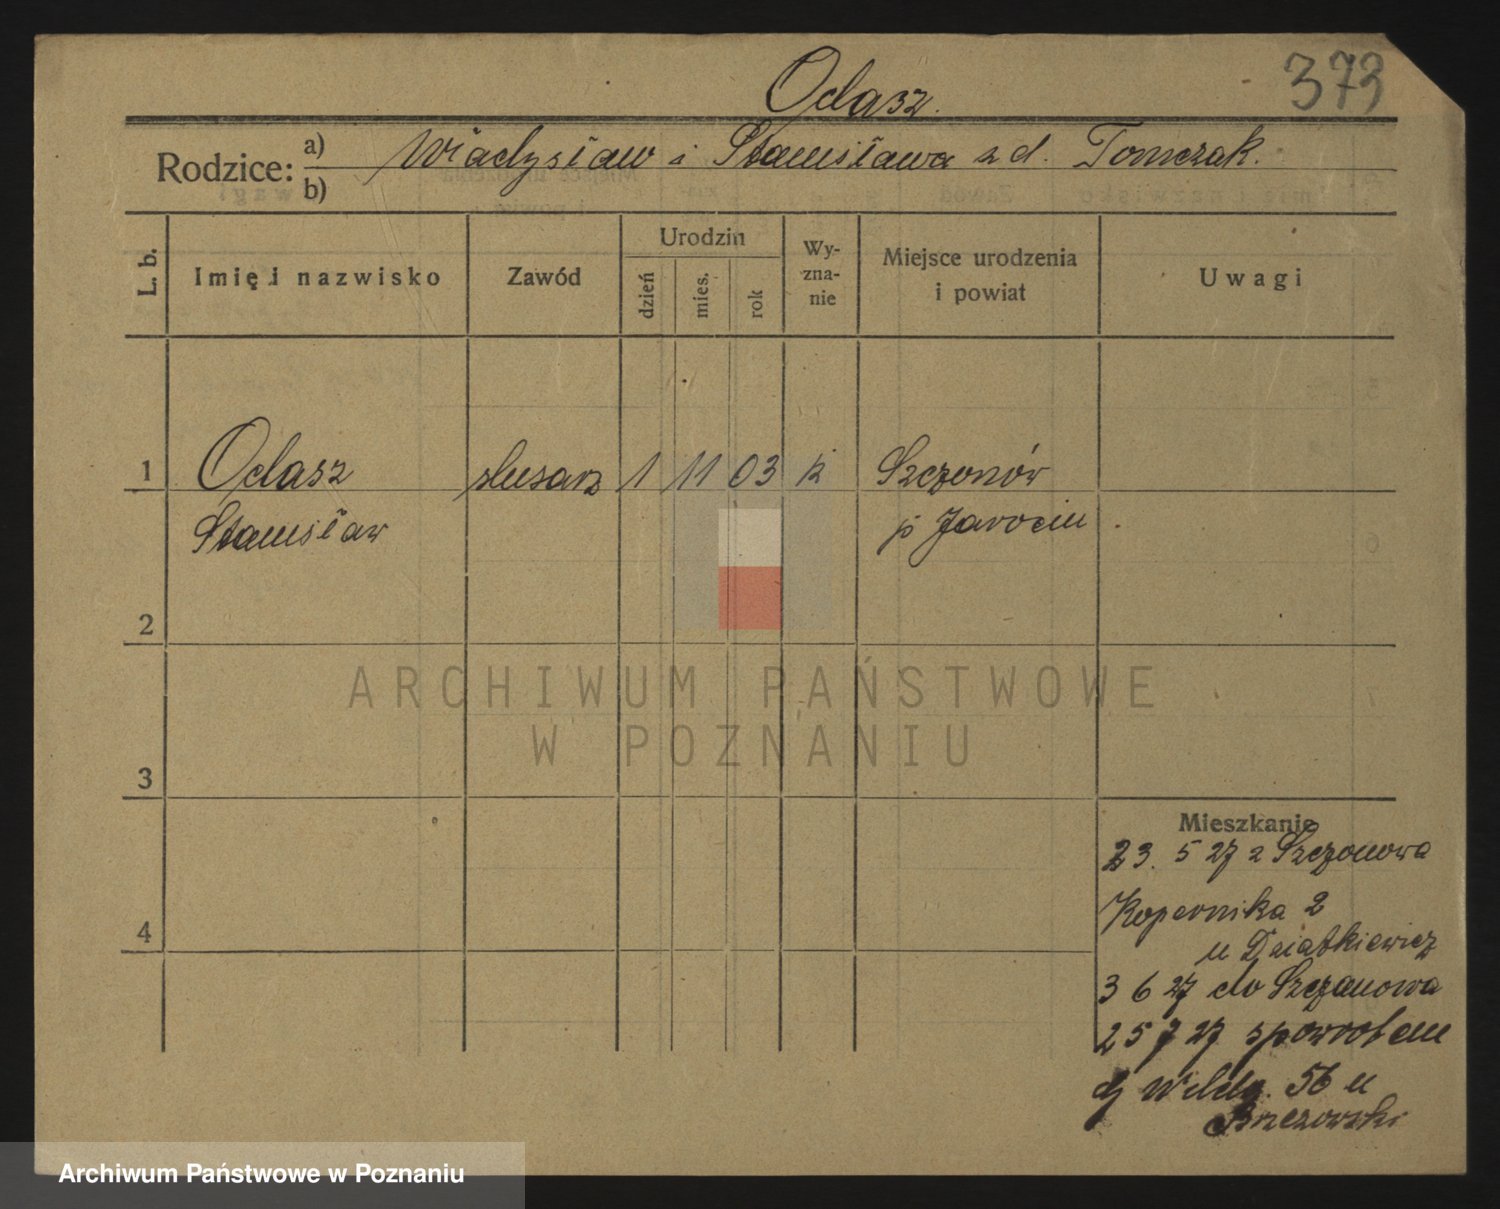 Odasz.
373
Rodzice: a) Władysław i Stanisława z d. Tomczak.
b)
L. b.
Imię i nazwisko
Zawód
Urodzin
dzień
mies.
rok
Wy-
zna-
nie
Miejsce urodzenia
i powiat
Uwagi
1 Odasz ślusarz 1 11 03 k Szczonów
Stanisław p Jarocin
2
ARCHIWUM PAŃSTWOWE
W POZNANIU
3
Mieszkanie
23. 5 27 z Szczonowa
Kopernika 2
4
u Dziatkiewicz
3 6 27 do Szczonowa
25 7 27 spowrotem
56 u
Brzezowski
Archiwum Państwowe w Poznaniu